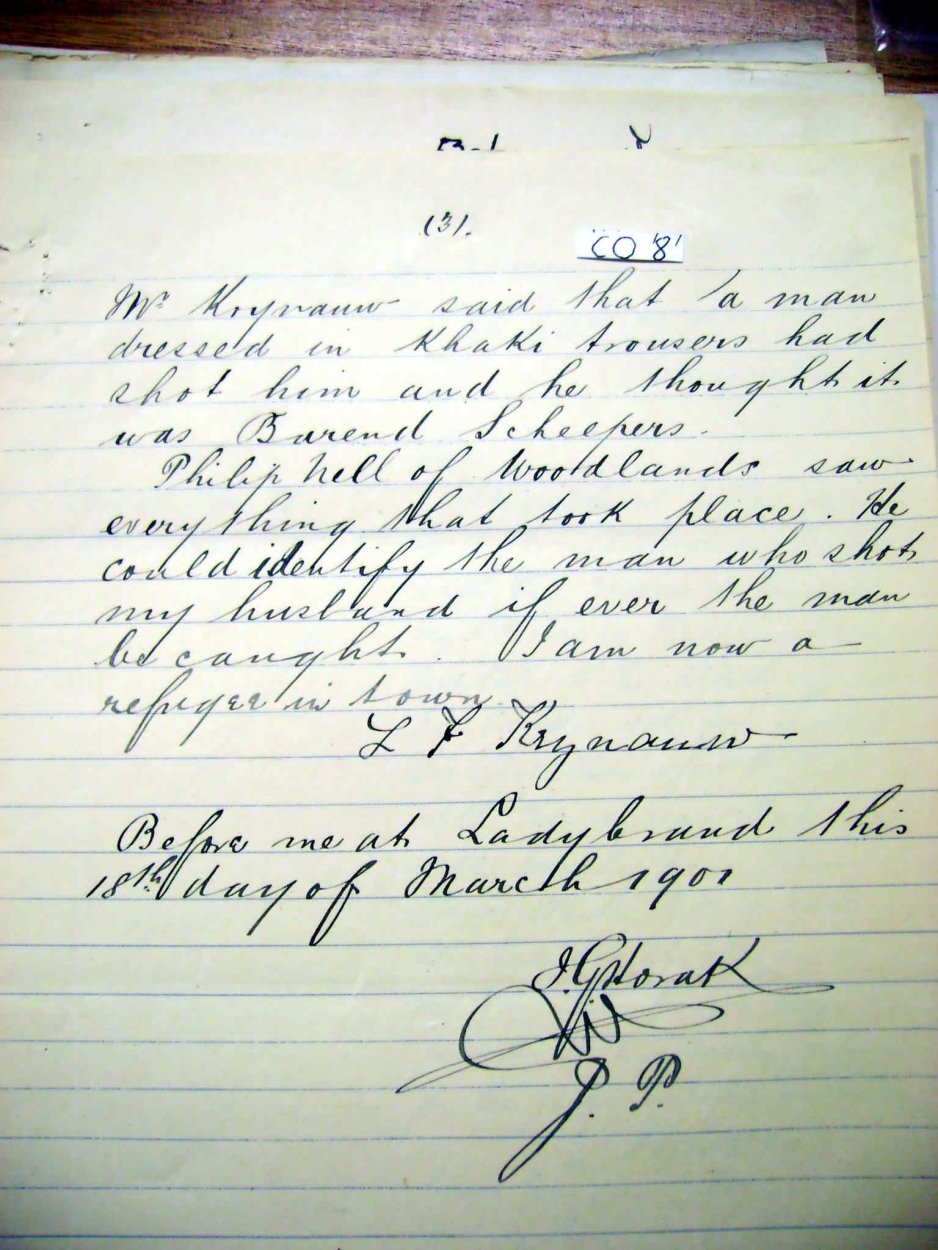 (3).
CO '8'
Mr Krynauw said that a man
dressed in Khaki trousers had
shot him and he thought it
was Barend Scheepers.
Philip Nell of Woodlands saw
everything that took place. He
could identify the man who shot
my husband if ever the man
be caught. I am now a
refugee in town.
L F Krynauw
Before me at Ladybrand this
18th day of March 1901
J. G. Horak
J. P.